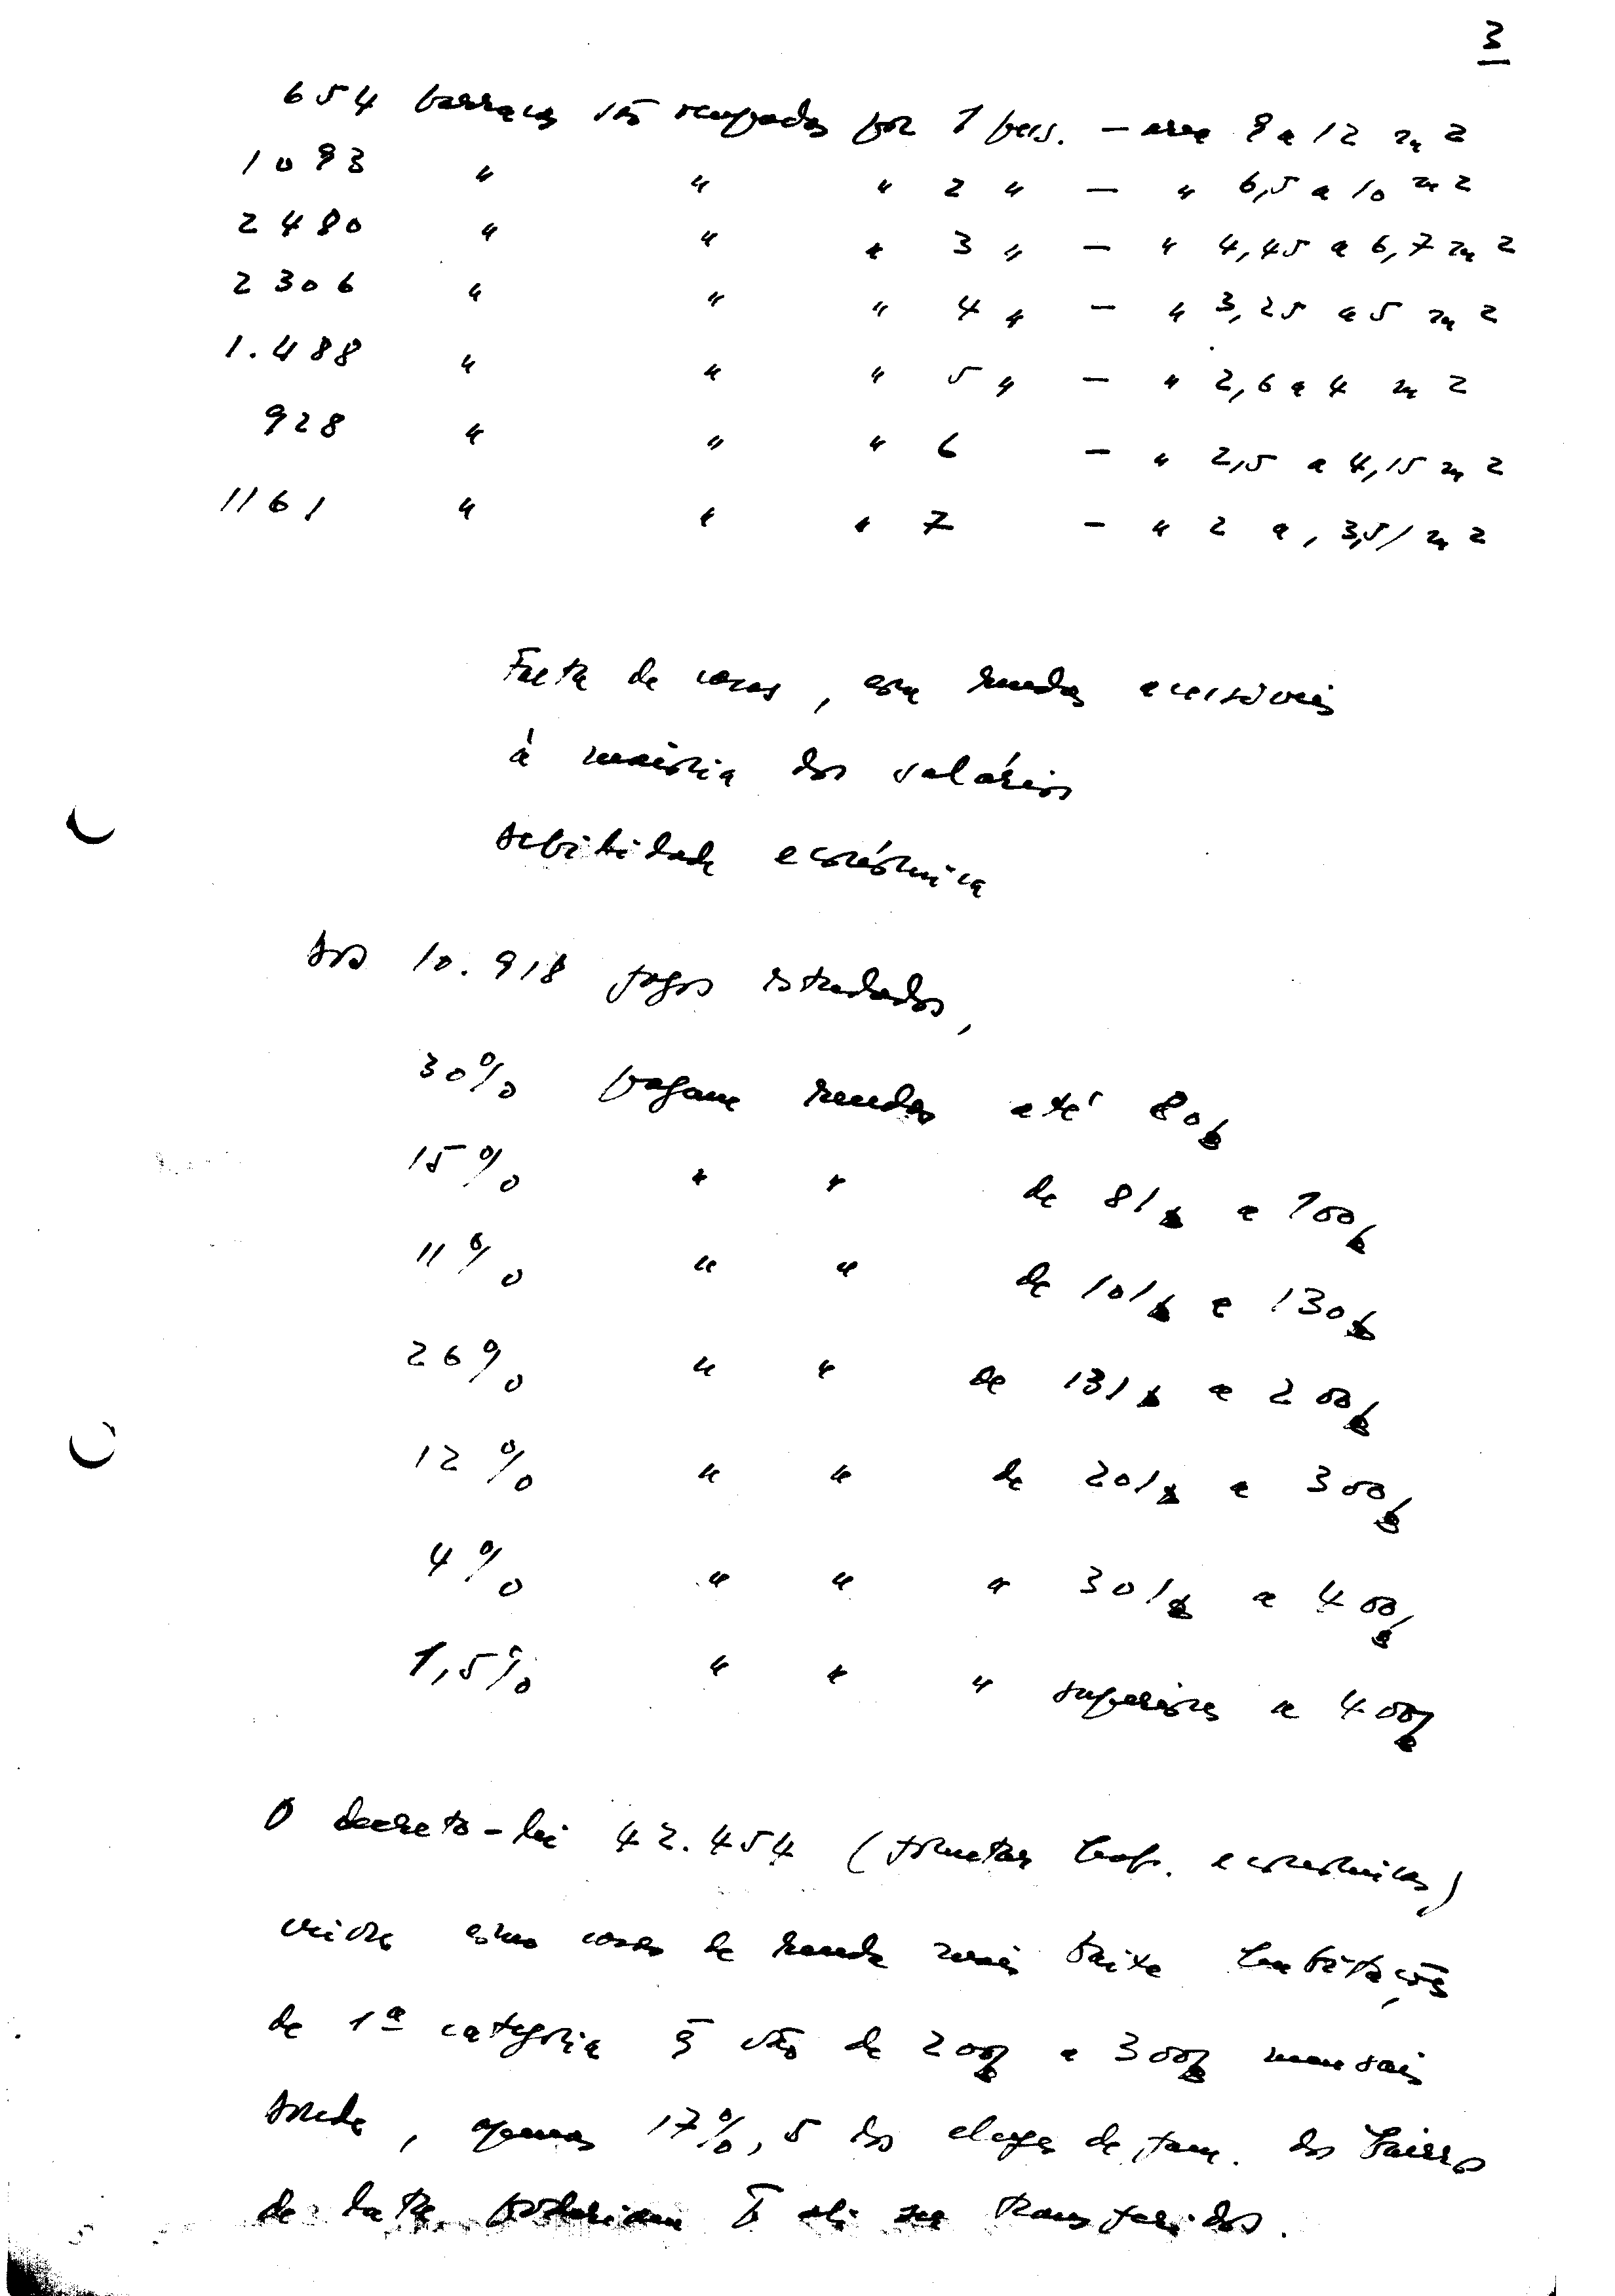 3
654 barracas são ocupadas por 1 pess. – area 8 a 12 m2
1083 " " " 2 " – " 6,5 a 10 m2
2480 " " " 3 " – " 4,45 a 6,7 m2
2306 " " " 4 " – " 3,25 a 5 m2
1.488 " " " 5 " – " 2,6 a 4 m2
928 " " " 6 – " 2,5 a 4,15 m2
1161 " " " 7 – " 2 a 3,5 m2
Falta de casas, com rendas acessíveis
à maioria dos salários
debilidade económica
dos 10.918 fogos estudados,
30% pagam rendas até 80$
15% " " de 81$ a 100$
11% " " de 101$ a 130$
26% " " de 131$ a 200$
12% " " de 201$ a 300$
4% " " " 301$ a 400$
1,5% " " " superiores a 400$
O decreto-lei 42.454 (
como casas de renda mais baixa habitações
de 1ª categoria q̄ vão de 200$ a 300$ mensais
donde, apenas 17%,5 dos chefes de fam. dos bairros
de lata poderiam p̄ ali ser transferidos.